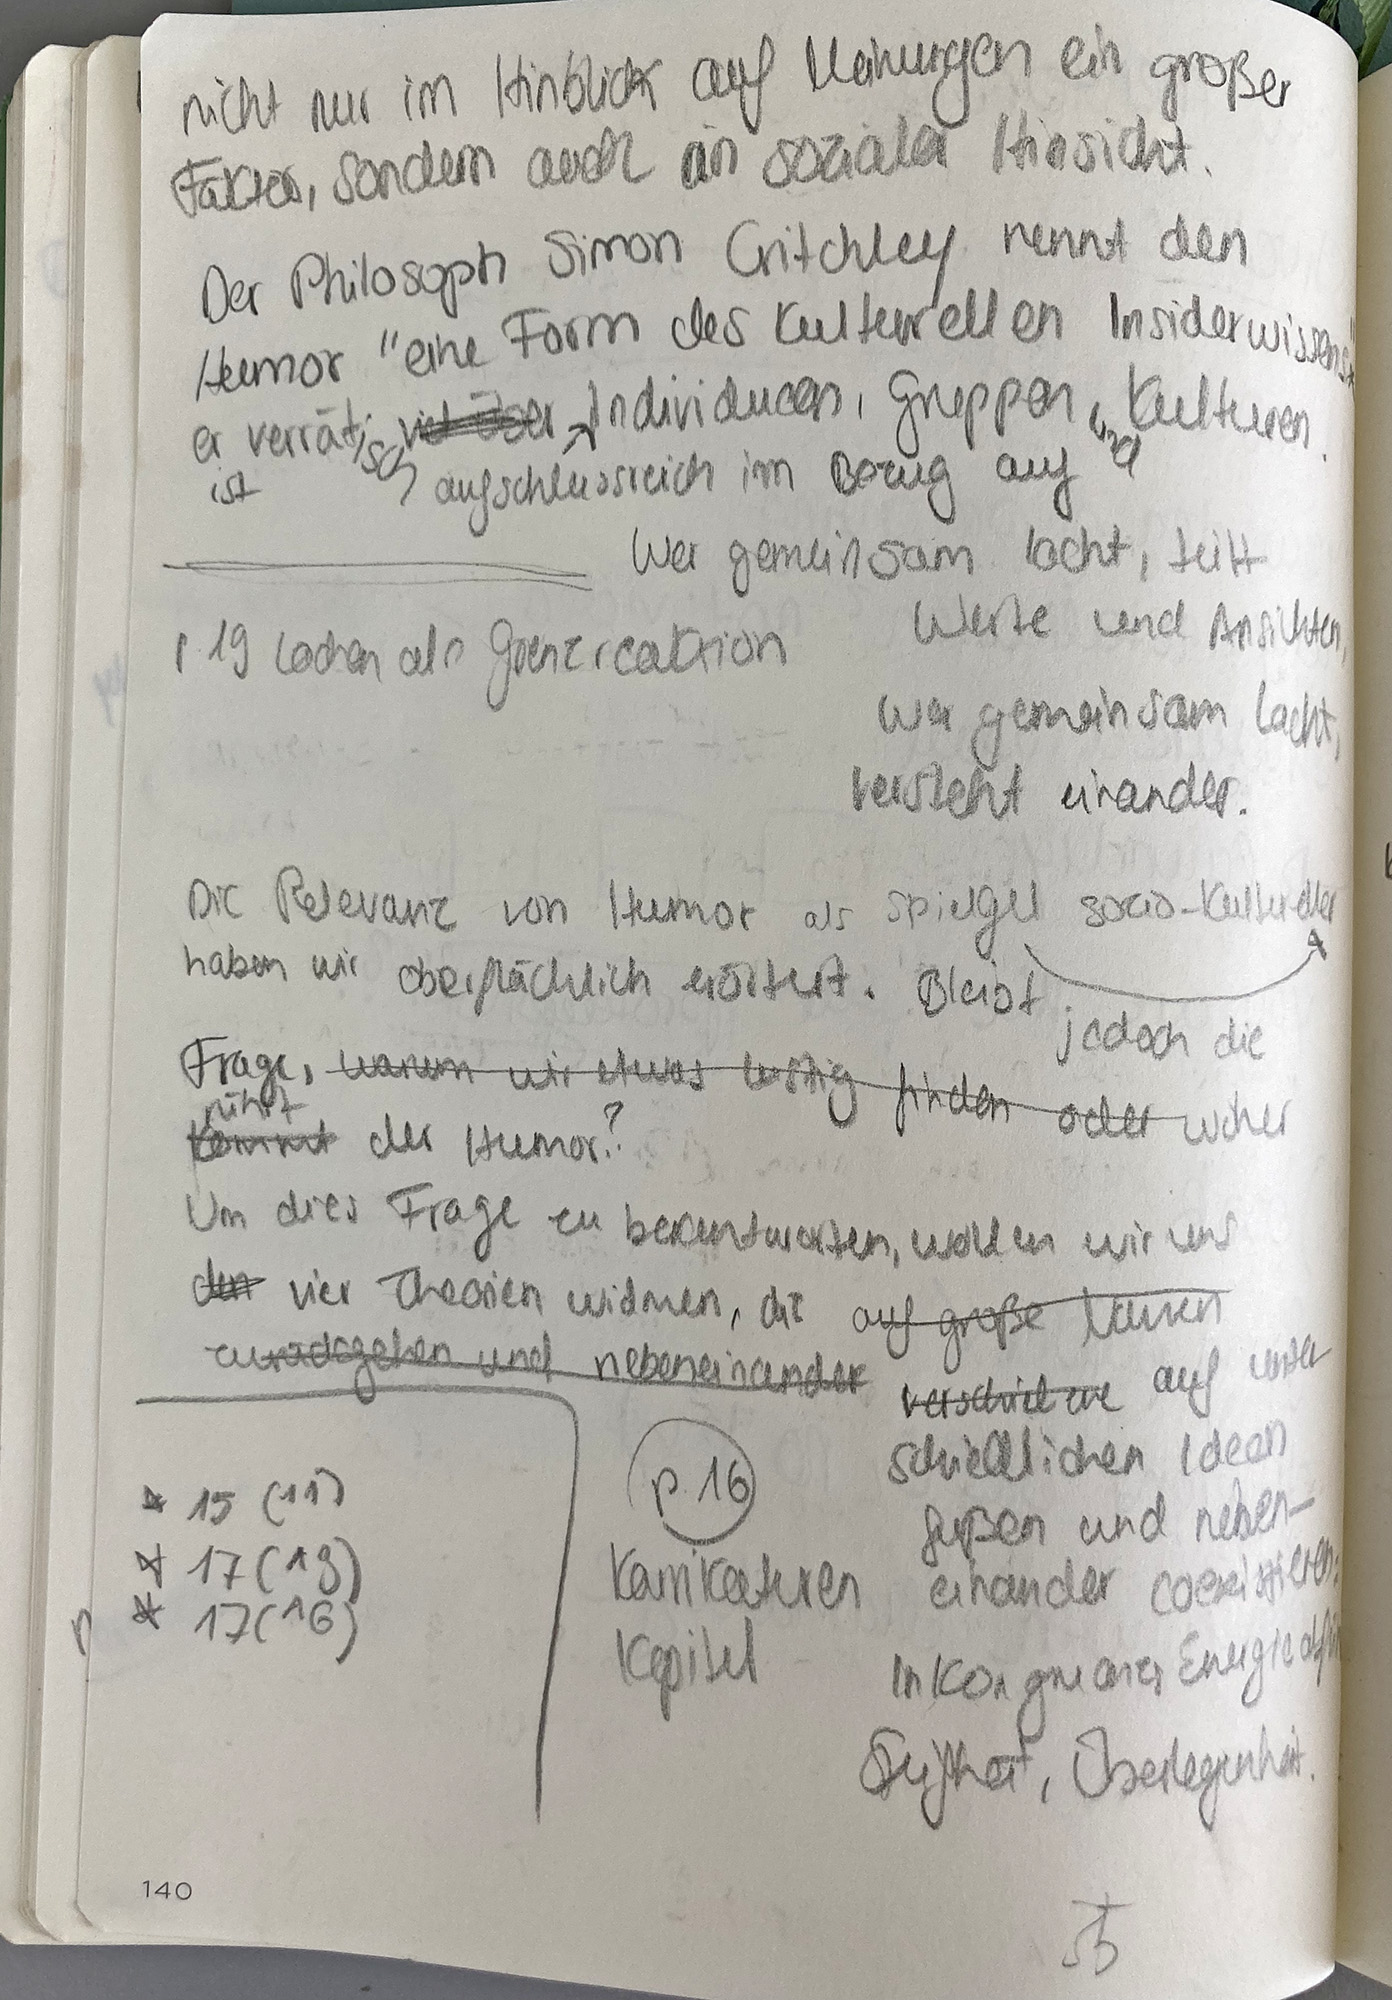 nicht nur im Hinblick auf Meinungen ein großer
Faktor, sondern auch in sozialer Hinsicht.
Der Philosoph Simon Critchley nennt den
Humor "eine Form des kulturellen Insiderwissens"
er verrät viel über Individuen, Gruppen und Kulturen.
ist aufschlussreich im Bezug auf
Wer gemeinsam lacht, teilt
Werte und Ansichten,
p. 19 Lachen als Grenzreaktion
wer gemeinsam lacht,
versteht einander.
Die Relevanz von Humor als Spiegel sozio-kultureller
haben wir oberflächlich erörtert. Bleibt
jedoch die
Frage, warum wir etwas lustig finden oder woher
rührt
kommt der Humor?
Um dies Frage zu beantworten, wollen wir uns
den vier Theorien widmen, die auf große Namen
zurückgehen und nebeneinander
verschiedene auf unter
schiedlichen Ideen
fußen und neben-
einander coexistieren:
Inkongruenz, Energieabfuhr
Überlegenheit.
* 15 (11)
* 17 (19)
* 17 (16)
p. 16
Karrikaturen
Kapitel
140